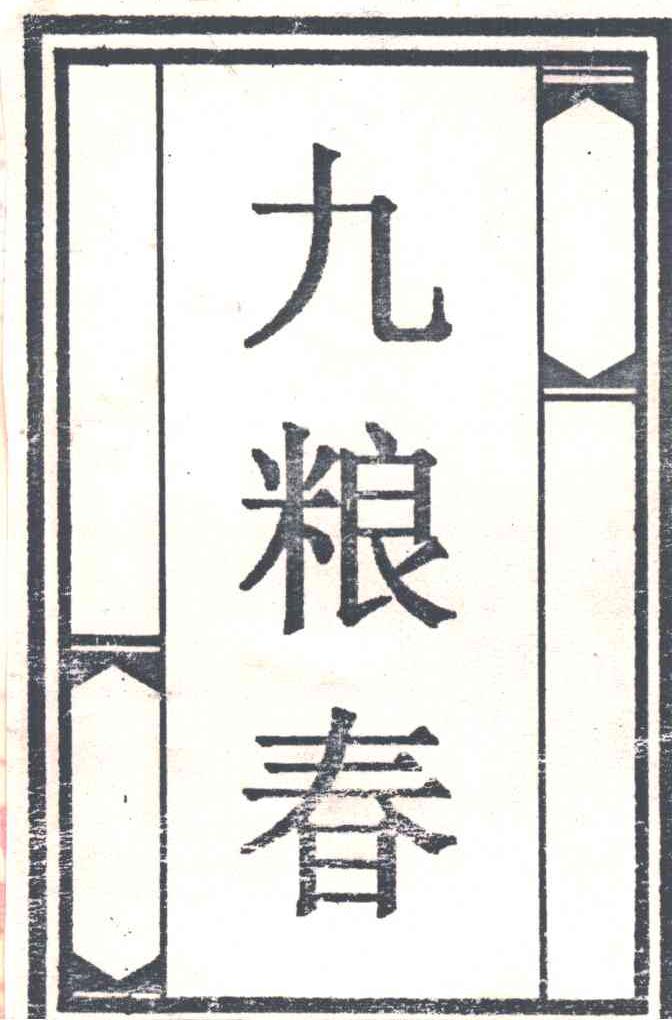 九粮春